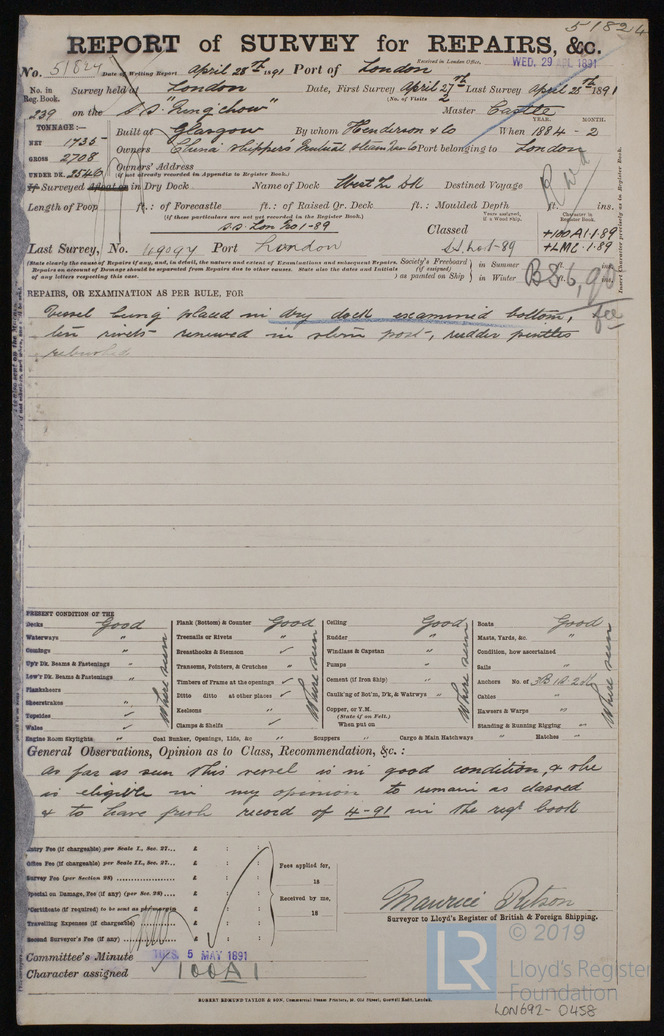 51824
REPORT of SURVEY for REPAIRS, &c.
Received in London Office, WED. 29 APL 1891
No. 51824 Date of Writing Report April 28th 1891 Port of London
No. in Reg. Book. Survey held at London Date, First Survey April 27th Last Survey April 28th 1891
(No. of Visits 2)
239 on the S.S. "Ningchow" Master Castle
TONNAGE:— YEAR. MONTH.
NET 1735 Built at Glasgow By whom Henderson & Co When 1884 - 2
GROSS 2708 Owners China Shippers Mutual Steam Nav Co Port belonging to London
UNDER DK. 2546 Owners' Address
(if not already recorded in Appendix to Register Book.)
If Surveyed Afloat or in Dry Dock Name of Dock West In Dk Destined Voyage
Length of Poop ft.: of Forecastle ft.: of Raised Qr. Deck ft.: Moulded Depth ft. ins.
(If these particulars are not yet recorded in the Register Book.)
Years assigned, if a Wood Ship.
Character in Register Book.
Insert Character precisely as in Register Book.
S.S. Lon No 1-89 Classed +100A1.1.89
Last Survey, No. Port London +LMC.1.89
(State clearly the cause of Repairs if any, and, in detail, the nature and extent of Examinations and subsequent Repairs. Repairs on account of Damage should be separated from Repairs due to other causes. State also the dates and Initials of any letters respecting this case.
Society's Freeboard (if assigned) as painted on Ship } in Summer ft. ins.
in Winter ft. ins.
REPAIRS, OR EXAMINATION AS PER RULE, FOR
Vessel being placed in dry dock examined bottom, fee
ten rivets renewed in stern post, rudder pintles
rebushed
PRESENT CONDITION OF THE
Decks Good
Waterways "
Comings "
Up'r Dk. Beams & Fastenings "
Low'r Dk. Beams & Fastenings "
Planksheers
Sheerstrakes
Topsides
Wales
Where seen
Plank (Bottom) & Counter Good
Treenails or Rivets "
Breasthooks & Stemson
Transoms, Pointers, & Crutches
Timbers of Frame at the openings
Ditto ditto at other places
Keelsons
Clamps & Shelfs
Where seen
Ceiling Good
Rudder "
Windlass & Capstan "
Pumps "
Cement (if Iron Ship) "
Caulk'ng of Bot'm, D'k, & Watrwys "
Copper, or Y.M.
(State if on Felt.)
When put on
Where seen
Boats Good
Masts, Yards, &c. "
Condition, how ascertained
Sails "
Anchors No. of 3B 1S 2K
Cables "
Hawsers & Warps "
Standing & Running Rigging "
Where seen
Engine Room Skylights " Coal Bunker, Openings, Lids, &c " Scuppers " Cargo & Main Hatchways " Hatches "
General Observations, Opinion as to Class, Recommendation, &c.:
As far as seen this vessel is in good condition, & she
is eligible in my opinion to remain as classed
& to have fresh record of 4-91 in the regr book
Entry Fee (if chargeable) per Scale I., Sec. 27... £ : :
Office Fee (if chargeable) per Scale II., Sec. 27... £ : :
Survey Fee (per Section 28) £ : :
Special on Damage, Fee (if any) (per Sec. 28) £ : :
Certificate (if required) to be sent as per margin £ : :
Travelling Expenses (if chargeable) £ : :
Second Surveyor's Fee (if any) £ : :
Fees applied for,
18
Received by me,
18
Maurice Ritson
Surveyor to Lloyd's Register of British & Foreign Shipping.
Committee's Minute TUES. 5 MAY 1891
Character assigned 100A1
© 2019
LR Lloyd's Register Foundation
LON692-0458
ROBERT EDMUND TAYLOR & SON, Commercial Steam Printers, 19, Old Street, Goswell Road, London.